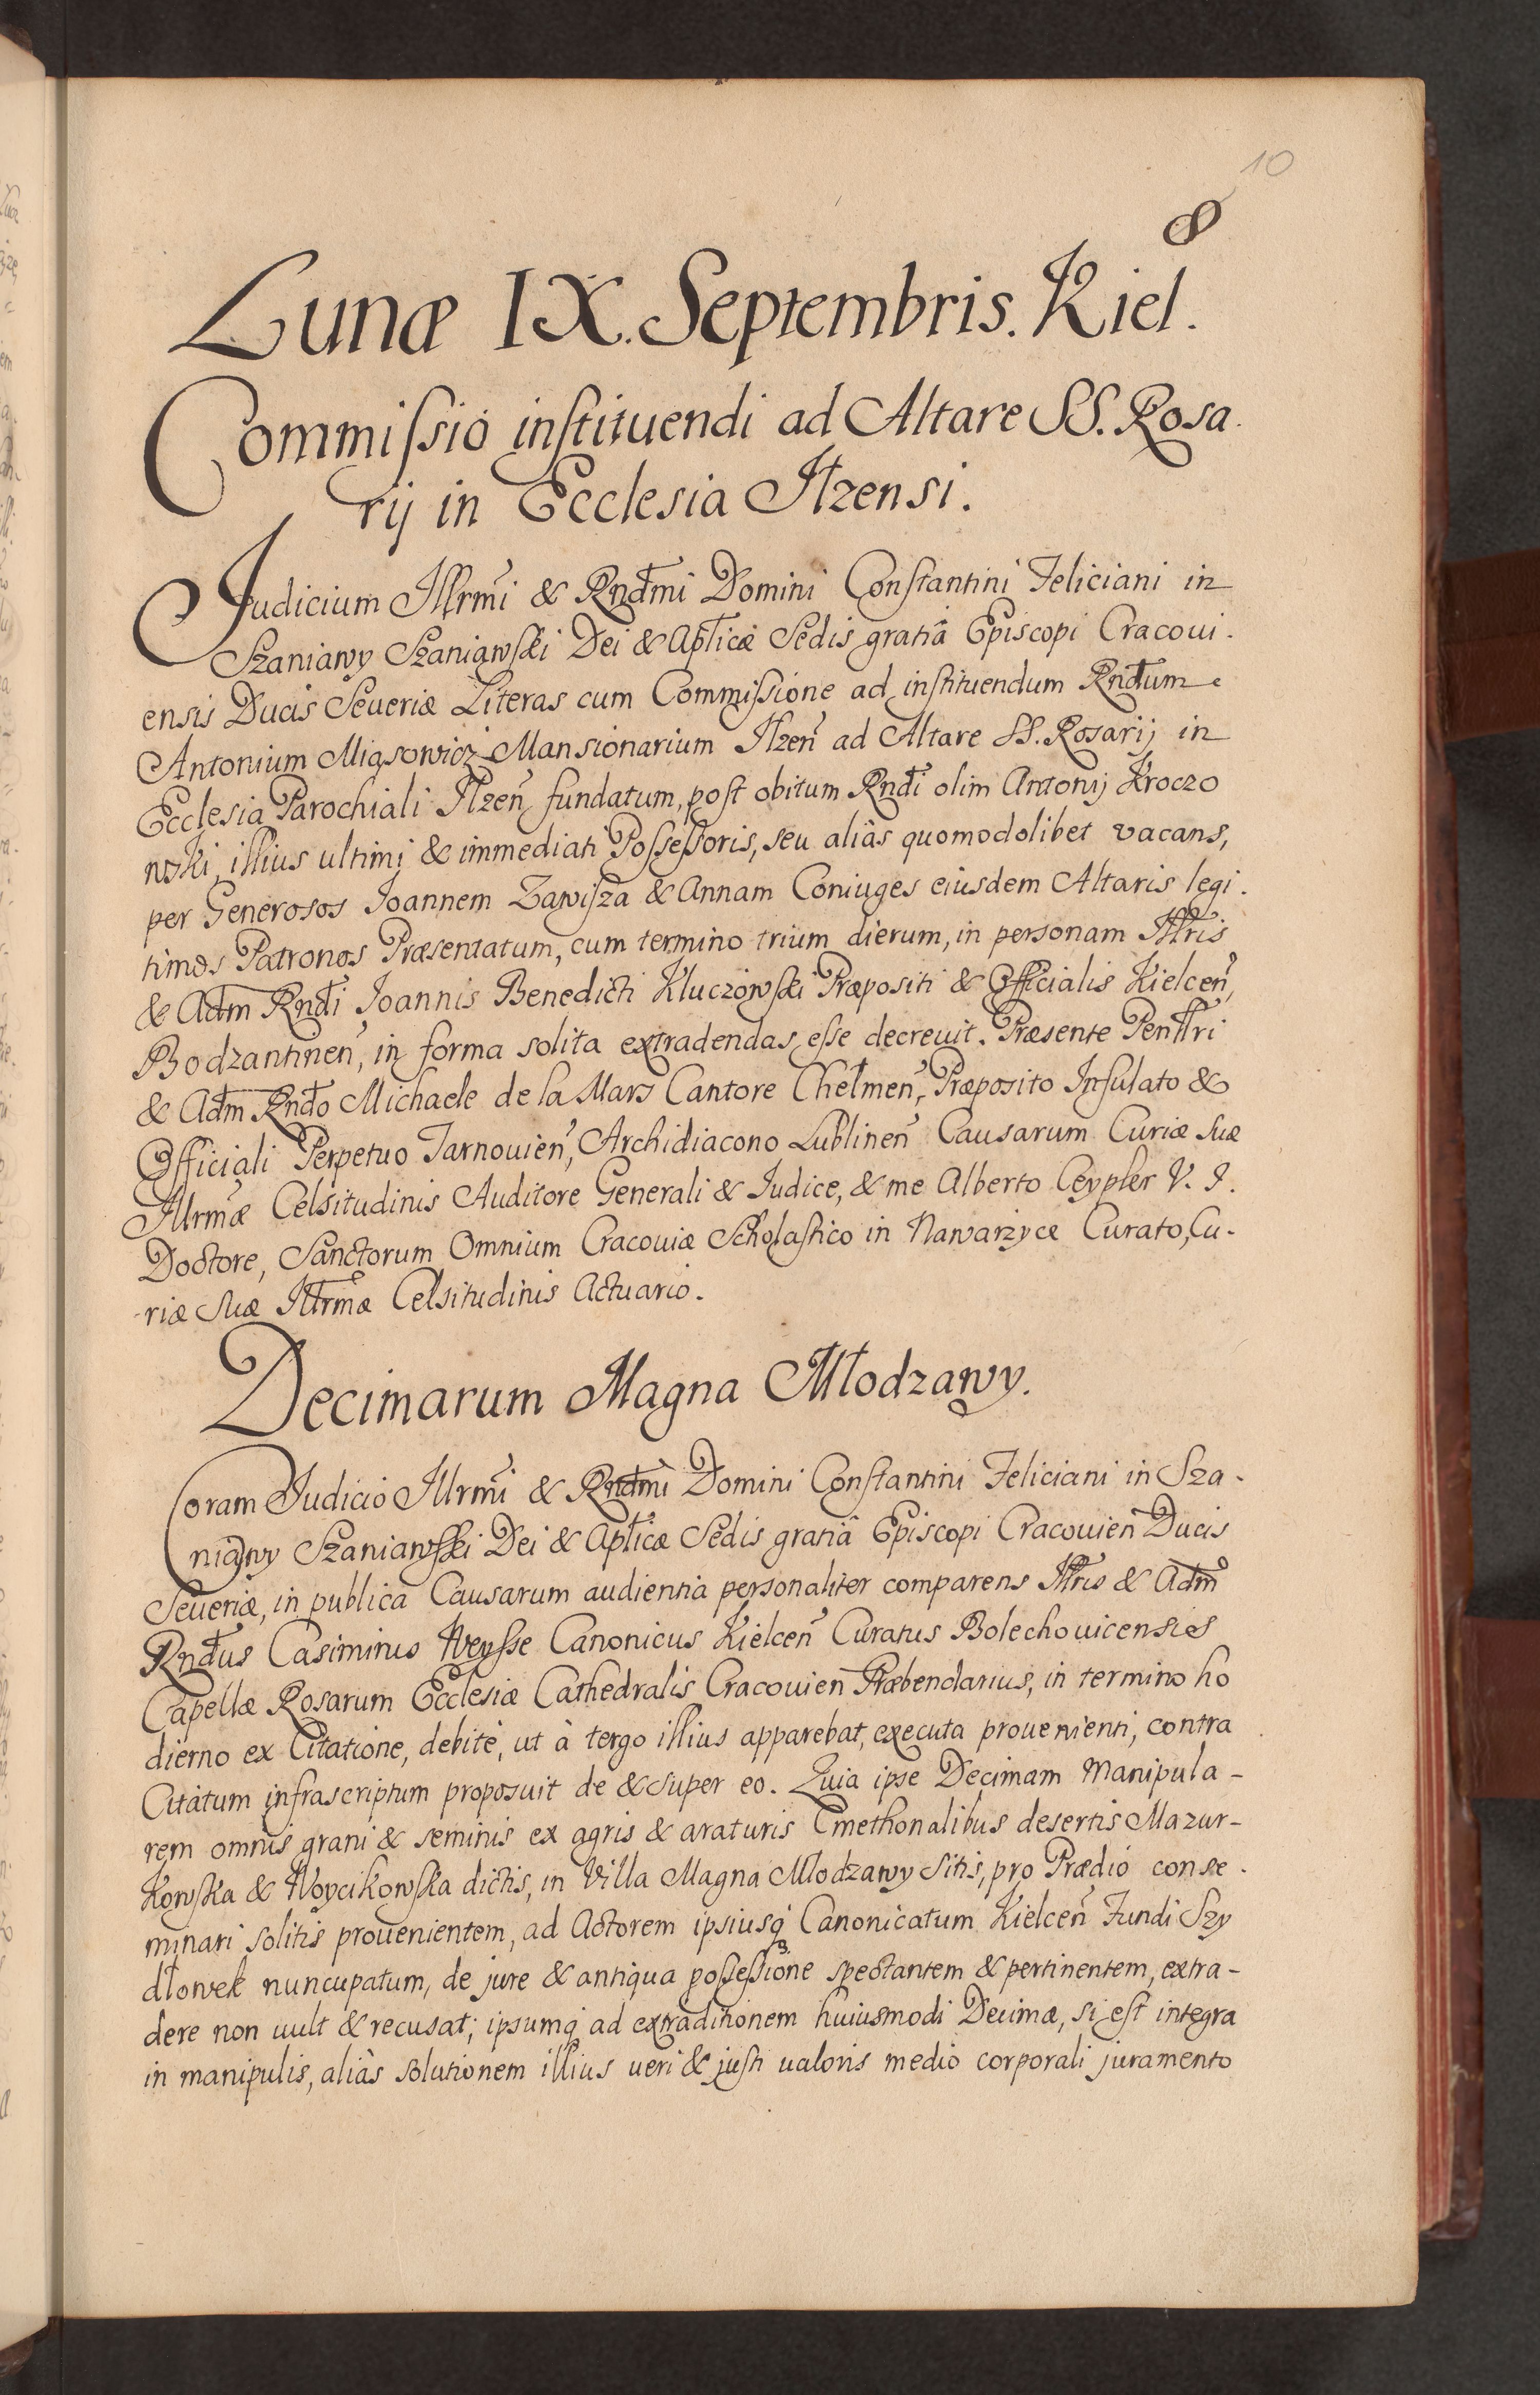 10
8
Lunæ IX. Septembris. Kiel.
Commissio instituendi ad Altare SS. Rosa-
rij in Ecclesia Ilzensi.
Judicium Illrmi & Rndmi Domini Constantini Feliciani in
Szaniawy Szaniawski Dei & Aplicæ Sedis gratiâ Episcopi Cracoui-
ensis Ducis Seueriæ Literas cum Commissione ad instituendum Rndum
Antonium Migsowicz Mansionarium Ilzen ad Altare SS. Rosarij in
Ecclesia Parochiali Ilzen fundatum, post obitum Rndi olim Antonij Kroczo
wski, illius ultimi & immediati Possessoris, seu aliàs quomodolibet vacans,
per Generosos Joannem Zawisza & Annam Coniuges eiusdem Altaris legi-
timos Patronos Præsentatum, cum termino trium dierum, in personam Illris
& Adm Rndi Joannis Benedicti Kluczowski Præpositi & Officialis Kielcen,
Bodzantinen, in forma solita extradendas esse decreuit. Præsente Penllri
& Adm Rndo Michaele de la Mars Cantore Chełmen, Præposito Insulato &
Officiali Perpetuo Tarnouien, Archidiacono Lublinen Causarum Curiæ Suæ
Illrmæ Celsitudinis Auditore Generali & Judice, & me Alberto Ceypler V. J.
Doctore, Sanctorum Omnium Cracouiæ Scholastico in Nawarzyce Curato, Cu-
riæ Suæ Illrmæ Celsitudinis Actuario.
Decimarum Magna Młodzawy.
Coram Judicio Illrmi & Rndmi Domini Constantini Feliciani in Sza-
niawy Szaniawski Dei & Aplicæ Sedis gratiâ Episcopi Cracouien Ducis
Seueriæ, in publica Causarum audientia personaliter comparens Illris & Adm
Rndus Casimirus Weysse Canonicus Kielcen Curatus Bolechouicensis
Capellæ Rosarum Ecclesiæ Cathedralis Cracouien Præbendarius, in termino ho
dierno ex Citatione, debitè, ut à tergo illius apparebat, executa prouenienti, contra
Citatum infrascriptum proposuit de & super eo. Quia ipse Decimam Manipula-
rem omnis grani & seminis ex agris & araturis Cmethonalibus desertis Mazur-
kowska & Woycikowska dictis, in Villa Magna Młodzawy Sitis, pro Prædio conse-
minari solitis prouenientem, ad Actorem ipsiusq Canonicatum Kielcen Fundi Szy
dłowek nuncupatum, de jure & antiqua possessione spectantem & pertinentem, extra-
dere non uult & recusat; ipsumq ad extraditionem huiusmodi Decimæ, si est integra
in manipulis, aliàs solutionem illius ueri & justi ualoris medio corporali juramento